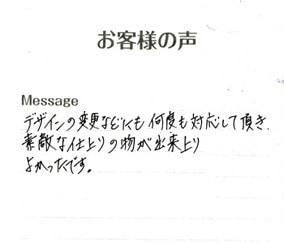 お客様の声
Message
デザインの変更などにも何度も対応して頂き、
素敵な仕上りの物が出来上り
よかったです。